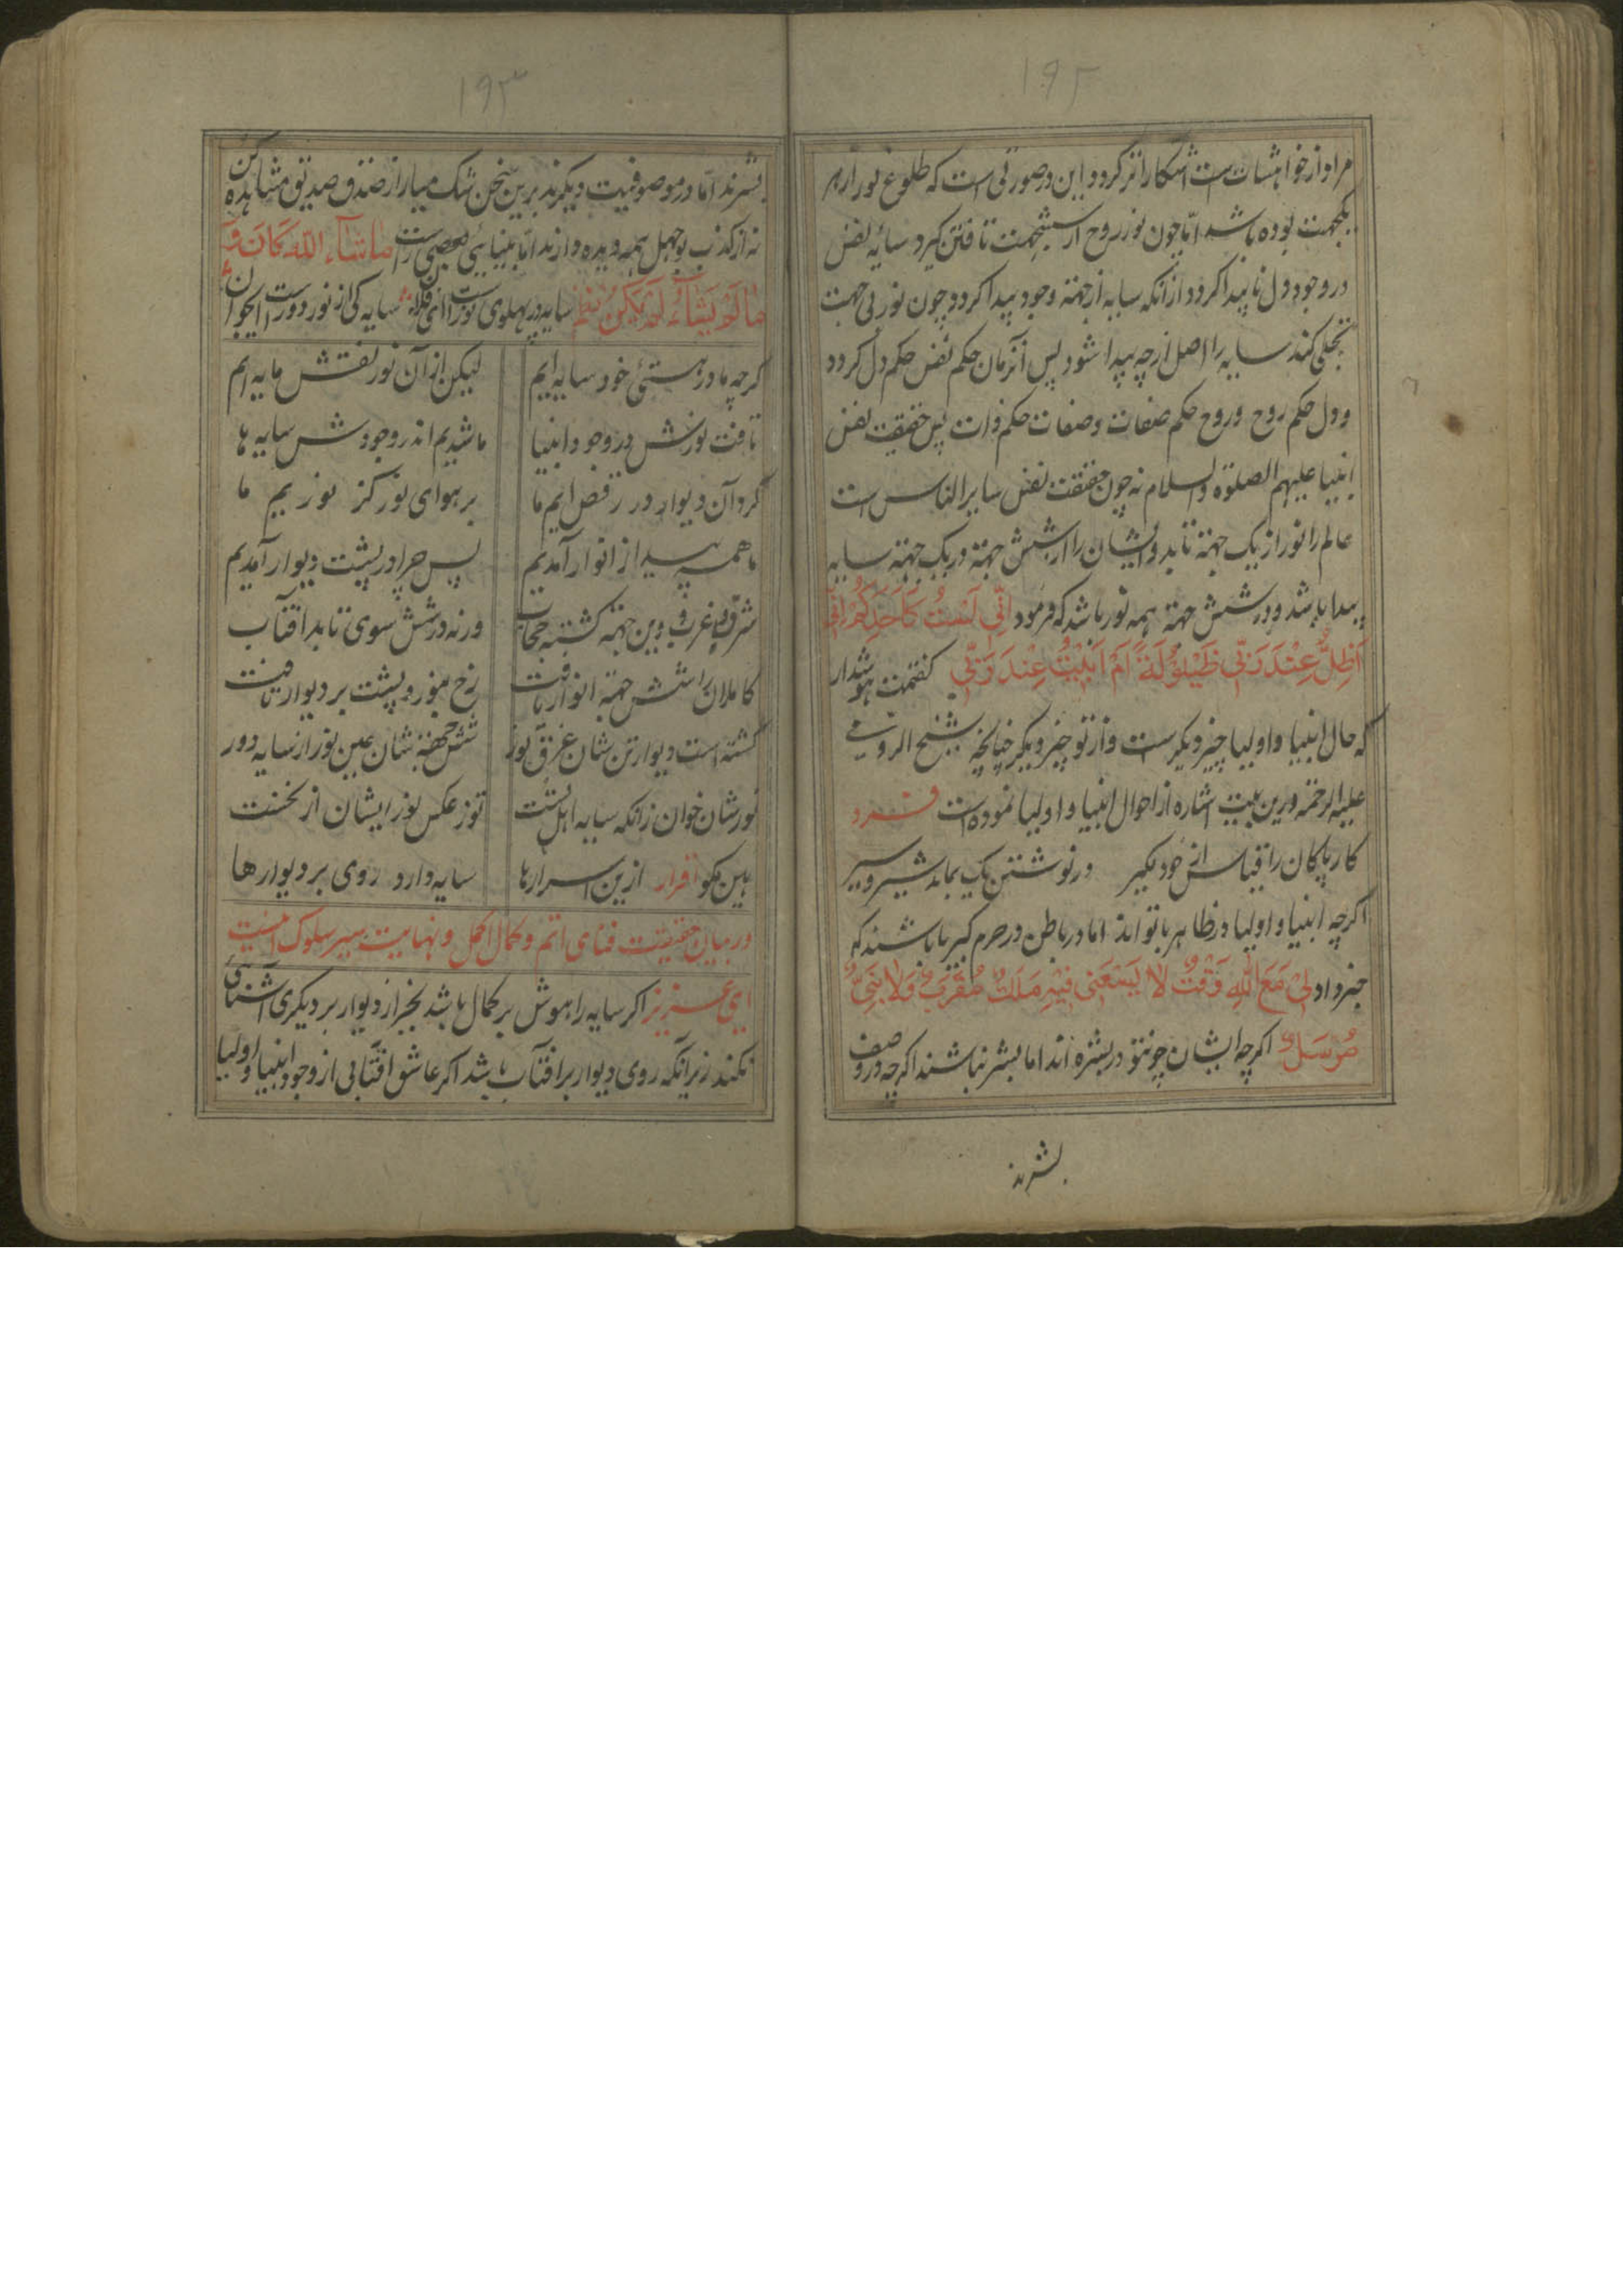 ۱۹۲
مراو از خواهشات است آشکاراتر کردد و این در صورتی است که طلوع نور از
یکجهت بوده باشد امّا چون نور روح از ششجهت تافتن کیرد سایه نفس
در وجود دل ناپیدا کردد از انکه سایه از جهته وجود پیدا کردد و چون نور بی جهت
تجلی کند سایه را اصل از چه پیدا شود پس آنزمان حکم نفس حکم دل کردد
و دل حکم روح و روح حکم صفات و صفات حکم ذات پس حقیقت نفس
انبیا علیهم الصلوة والسلام نه چون حقیقت نفس سایر الناس است
عالم را نور از یک جهته تابد و ایشان را از شش جهته در یک جهته سایه
پیدا باشد و در شش جهته همه نور باشد که فرمود اِنّی لَسْتُ کَاَحَدِکُمْ اِنّی
اَظِلُّ عِنْدَ رَبّی ظَیْلُوْلَةً اَمْ اَبِیْتُ عِنْدَ رَبّی کفتمت هوشدار
که حال انبیا و اولیا چیز دیکر ست و از تو چیز دیکر چنانچه شیخ الرومی
علیه الرحمته درین بیت اشاره از احوال انبیا و اولیا نموده است فرد
کار پاکان را قیاس از خود مکیر در نوشتن یک بماند شیر و شیر
اکرچه انبیا و اولیا در ظاهر با تو اند اما در باطن در حرم کبریا باشند که
خبر داد لِیْ مَعَ اللهِ وَقْتٌ لا یَسَعُنی فیْهِ مَلَکٌ مُقَرَّبٌ وَلا نَبِیٌّ
مُرْسَلٌ اکرچه ایشان چونتو در بشره اند اما بشر نباشند اکرچه در وصف
بشرند
۱۹۳
بشرند امّا در موصوفیت دیکرند برین سخن شک میار از صدق صدیق مشاهده کن
نه از کذب بوجهل همه دیده دارند امّا بینایی بعضی راست ما شَاءَ اللّه کَانَ وَ
ما لَمْ یَشَاءْ لَمْ یَکُنْ سایه در پهلوی نورست ای فلان سایه کی از نور دورست
کرچه ما در هستئ خود سایه ایم لیکن از آن نور نقش مایه ایم
تافت نورش در وجود انبیا ما شدیم اندر وجودش سایه ها
کرد آن دیوار در رقص ایم ما بر هوای نور کز نوریم ما
ما همه پیدا از انوار آمدیم پس چرا در پشت دیوار آمدیم
شرق و غرب و بین جهته کشته حجاب ورنه در شش سوی تابد افتاب
کاملان را شش جهته انوار یافت رخ بنور و پشت بر دیوار یافت
کشته است دیوار تن شان غرق نور شش جهته شان عین نور از سایه دور
نورشان خوان زانکه سایه اهل تست تو ز عکس نور ایشان از نخست
هین مکو افرار ازین اسرارها سایه دارد روی بر دیوارها
در بیان حقیقت فنای اتم و کمال اکمل و نهایت سیر سلوک است
ای عزیز اکر سایه را هوش بر کمال باشد بجز از دیوار بر دیکری آشنائی
نکند زیرانکه روی دیوار بر افتاب باشد اکر عاشق افتابی از وجود انبیا و اولیا